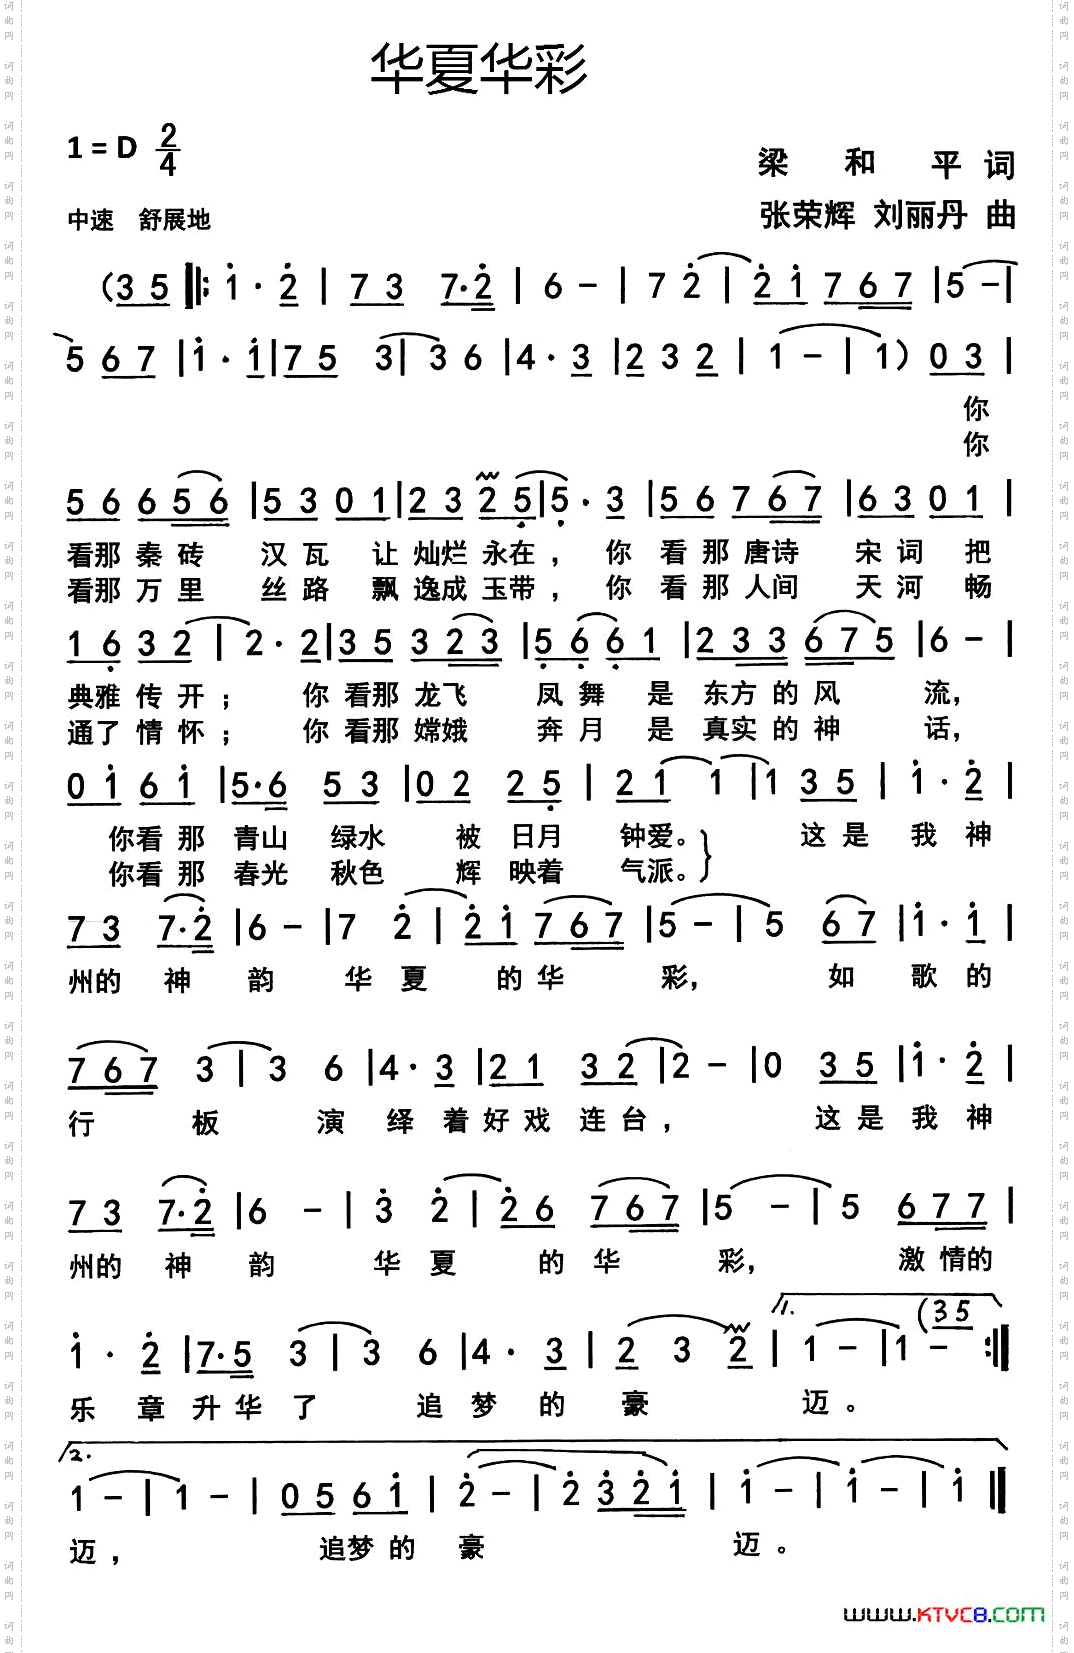 华夏华彩
1=D 2/4
梁 和 平 词
中速 舒展地
张荣辉 刘丽丹 曲
(3 5 ‖: i· 2 | 7 3 7·2 | 6 - | 7 2 | 2 i 7 6 7 | 5 - |
5 6 7 | i· i | 7 5 3 | 3 6 | 4· 3 | 2 3 2 | 1 - | 1) 0 3 |
你
你
5 6 6 5 6 | 5 3 0 1 | 2 3 2 5 | 5· 3 | 5 6 7 6 7 | 6 3 0 1 |
看那 秦 砖 汉 瓦 让 灿烂 永在, 你 看 那 唐诗 宋 词 把
看那 万 里 丝 路 飘 逸成 玉带, 你 看 那 人间 天 河 畅
1 6 3 2 | 2· 2 | 3 5 3 2 3 | 5 6 6 1 | 2 3 3 6 7 5 | 6 - |
典雅 传 开; 你 看那 龙飞 凤 舞 是 东方 的 风 流,
通了 情 怀; 你 看那 嫦娥 奔 月 是 真实 的 神 话,
0 i 6 i | 5·6 5 3 | 0 2 2 5 | 2 1 1 | 1 3 5 | i· 2 |
你看 那 青山 绿水 被 日月 钟爱。 这 是 我 神
你看 那 春光 秋色 辉 映着 气派。
7 3 7·2 | 6 - | 7 2 | 2 i 7 6 7 | 5 - | 5 6 7 | i· i |
州的 神 韵 华 夏 的 华 彩, 如 歌 的
7 6 7 3 | 3 6 | 4· 3 | 2 1 3 2 | 2 - | 0 3 5 | i· 2 |
行 板 演 绎 着 好 戏 连 台, 这 是 我 神
7 3 7·2 | 6 - | 3 2 | 2 6 7 6 7 | 5 - | 5 6 7 7 |
州的 神 韵 华 夏 的 华 彩, 激 情的
1. (3 5
i· 2 | 7·5 3 | 3 6 | 4· 3 | 2 3 2 | 1 - | 1 - :‖
乐 章 升 华 了 追 梦 的 豪 迈。
2.
1 - | 1 - | 0 5 6 i | 2 - | 2 3 2 i | i - | i - | i ‖
迈, 追梦 的 豪 迈。
www.KTVC8.com